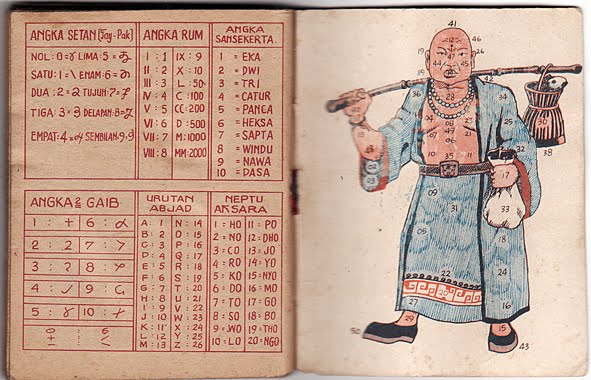 ANGKA SETAN (Jay-Pak)
NOL : 0 = LIMA : 5 =
SATU : 1 = \ ENAM : 6 =
DUA : 2 = TUJUH : 7 =
TIGA : 3 = DELAPAN : 8 =
EMPAT : 4 = SEMBILAN : 9 =
ANGKA RUM
I : 1 IX : 9
II : 2 X : 10
III : 3 L : 50
IV : 4 C : 100
V : 5 CC : 200
VI : 6 D : 500
VII : 7 M : 1000
VIII : 8 MM : 2000
ANGKA
SANSEKERTA.
1 = EKA
2 = DWI
3 = TRI
4 = CATUR
5 = PANCA
6 = HEKSA
7 = SAPTA
8 = WINDU
9 = NAWA
10 = DASA
ANGKA2 GAIB
1 : + 6 :
2 : 2 7 :
3 : 8 :
4 : 9 :
5 : 10 :
0 6
URUTAN
ABJAD
A : 1 N : 14
B : 2 O : 15
C : 3 P : 16
D : 4 Q : 17
E : 5 R : 18
F : 6 S : 19
G : 7 T : 20
H : 8 U : 21
I : 9 V : 22
J : 10 W : 23
K : 11 X : 24
L : 12 Y : 25
M : 13 Z : 26
NEPTU
AKSARA
1 = HO 11 = PO
2 = NO 12 = DHO
3 = CO 13 = JO
4 = RO 14 = YO
5 = KO 15 = NYO
6 = DO 16 = MO
7 = TO 17 = GO
8 = SO 18 = BO
9 = WO 19 = THO
10 = LO 20 = NGO
41
46
19 26
44 45
30
38
10 35 11
17
09 31 33
05 18
22 24
27 16
29
50 43